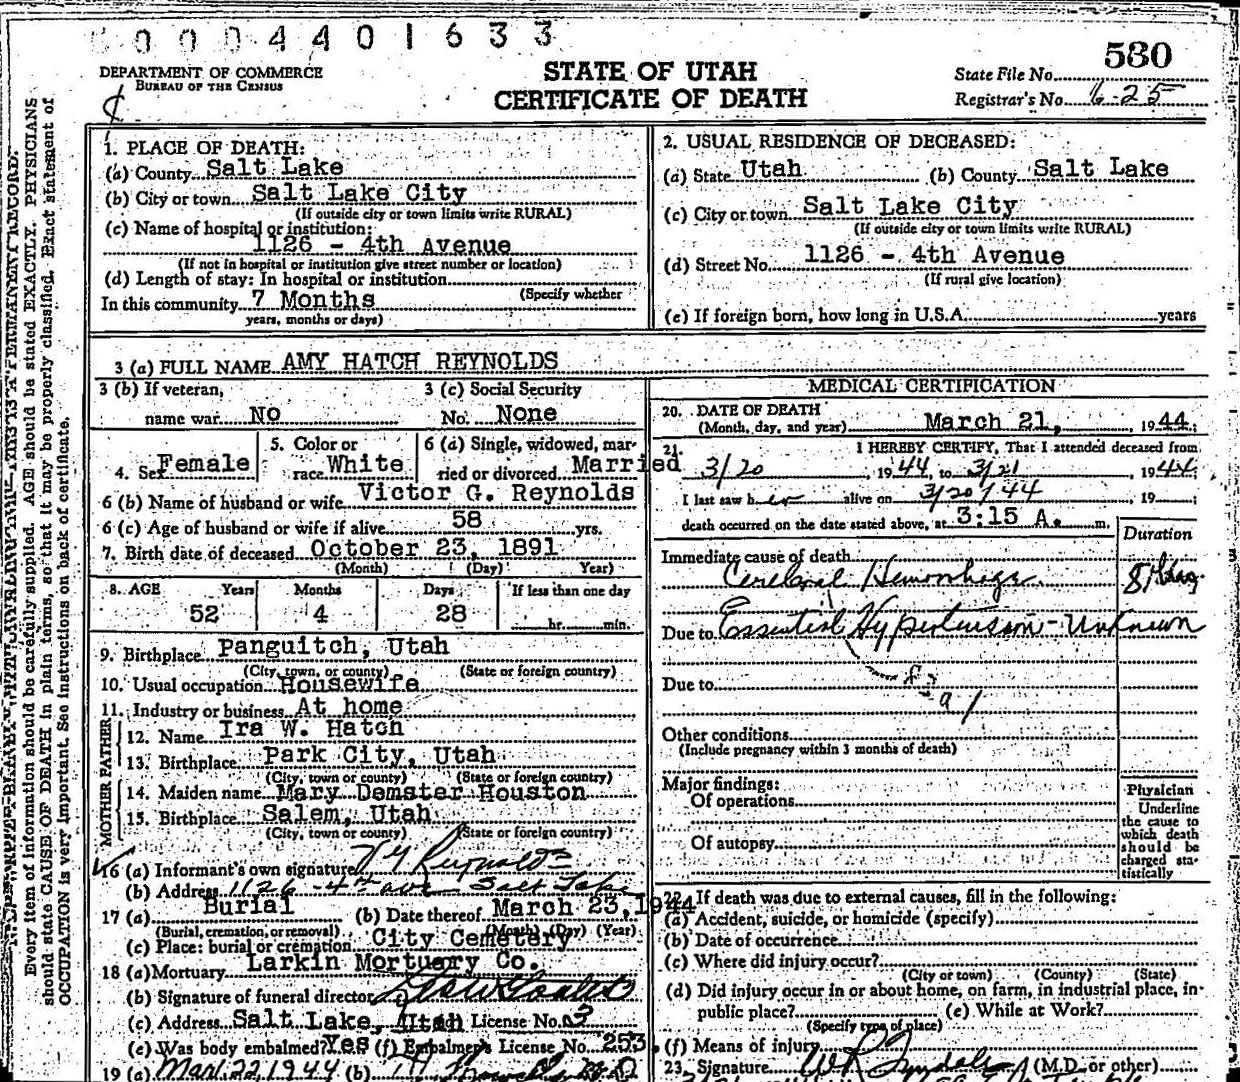 0004401633
580
DEPARTMENT OF COMMERCE
BUREAU OF THE CENSUS
STATE OF UTAH
CERTIFICATE OF DEATH
State File No.
Registrar's No. 625
Every item of information should be carefully supplied. AGE should be stated EXACTLY. PHYSICIANS
should state CAUSE OF DEATH in plain terms, so that it may be properly classified. Exact statement of
OCCUPATION is very important. See instructions on back of certificate.
1. PLACE OF DEATH:
(a) County Salt Lake
(b) City or town Salt Lake City
(If outside city or town limits write RURAL)
(c) Name of hospital or institution:
1126 - 4th Avenue
(If not in hospital or institution give street number or location)
(d) Length of stay: In hospital or institution
(Specify whether
In this community 7 Months
years, months or days)
2. USUAL RESIDENCE OF DECEASED:
(a) State Utah (b) County Salt Lake
(c) City or town Salt Lake City
(If outside city or town limits write RURAL)
(d) Street No. 1126 - 4th Avenue
(If rural give location)
(e) If foreign born, how long in U.S.A. years
3 (a) FULL NAME AMY HATCH REYNOLDS
3 (b) If veteran, 3 (c) Social Security
name war No No. None
4. Sex Female 5. Color or race White 6 (a) Single, widowed, mar-
ried or divorced Married
6 (b) Name of husband or wife Victor G. Reynolds
6 (c) Age of husband or wife if alive 58 yrs.
7. Birth date of deceased October 23, 1891
(Month) (Day) Year)
8. AGE Years Months Days If less than one day
52 4 28 hr. min.
9. Birthplace Panguitch, Utah
(City, town, or county) (State or foreign country)
10. Usual occupation Housewife
11. Industry or business At home
FATHER
12. Name Ira W. Hatch
13. Birthplace Park City, Utah
(City, town or county) (State or foreign country)
MOTHER
14. Maiden name Mary Demster Houston
15. Birthplace Salem, Utah
(City, town or county) (State or foreign country)
16 (a) Informant's own signature V G Reynolds
(b) Address 1126 - 4th ave - Salt Lake
17 (a) Burial (b) Date thereof March 23, 1944
(Burial, cremation, or removal) (Month) (Day) (Year)
(c) Place: burial or cremation City Cemetery
18 (a) Mortuary Larkin Mortuary Co.
(b) Signature of funeral director
(c) Address Salt Lake, Utah License No. 3
(e) Was body embalmed? Yes (f) Embalmer's License No. 253
19 (a) Mar 22, 1944 (b)
MEDICAL CERTIFICATION
20. DATE OF DEATH
(Month, day, and year) March 21, 1944;
21. I HEREBY CERTIFY, That I attended deceased from
3/20, 1944, to 3/21, 1944;
I last saw h er alive on 3/20/44 19
death occurred on the date stated above, at 3:15 A. m.
Duration
Immediate cause of death
Cerebral Hemorrhage
Due to Essential Hypertension - Unknown
Due to
Other conditions
(Include pregnancy within 3 months of death)
Major findings:
Of operations
Of autopsy
Physician
Underline
the cause to
which death
should be
charged sta-
tistically
22. If death was due to external causes, fill in the following:
(a) Accident, suicide, or homicide (specify)
(b) Date of occurrence
(c) Where did injury occur?
(City or town) (County) (State)
(d) Did injury occur in or about home, on farm, in industrial place, in
public place? (e) While at Work?
(Specify type of place)
(f) Means of injury
23. Signature (M.D. or other)